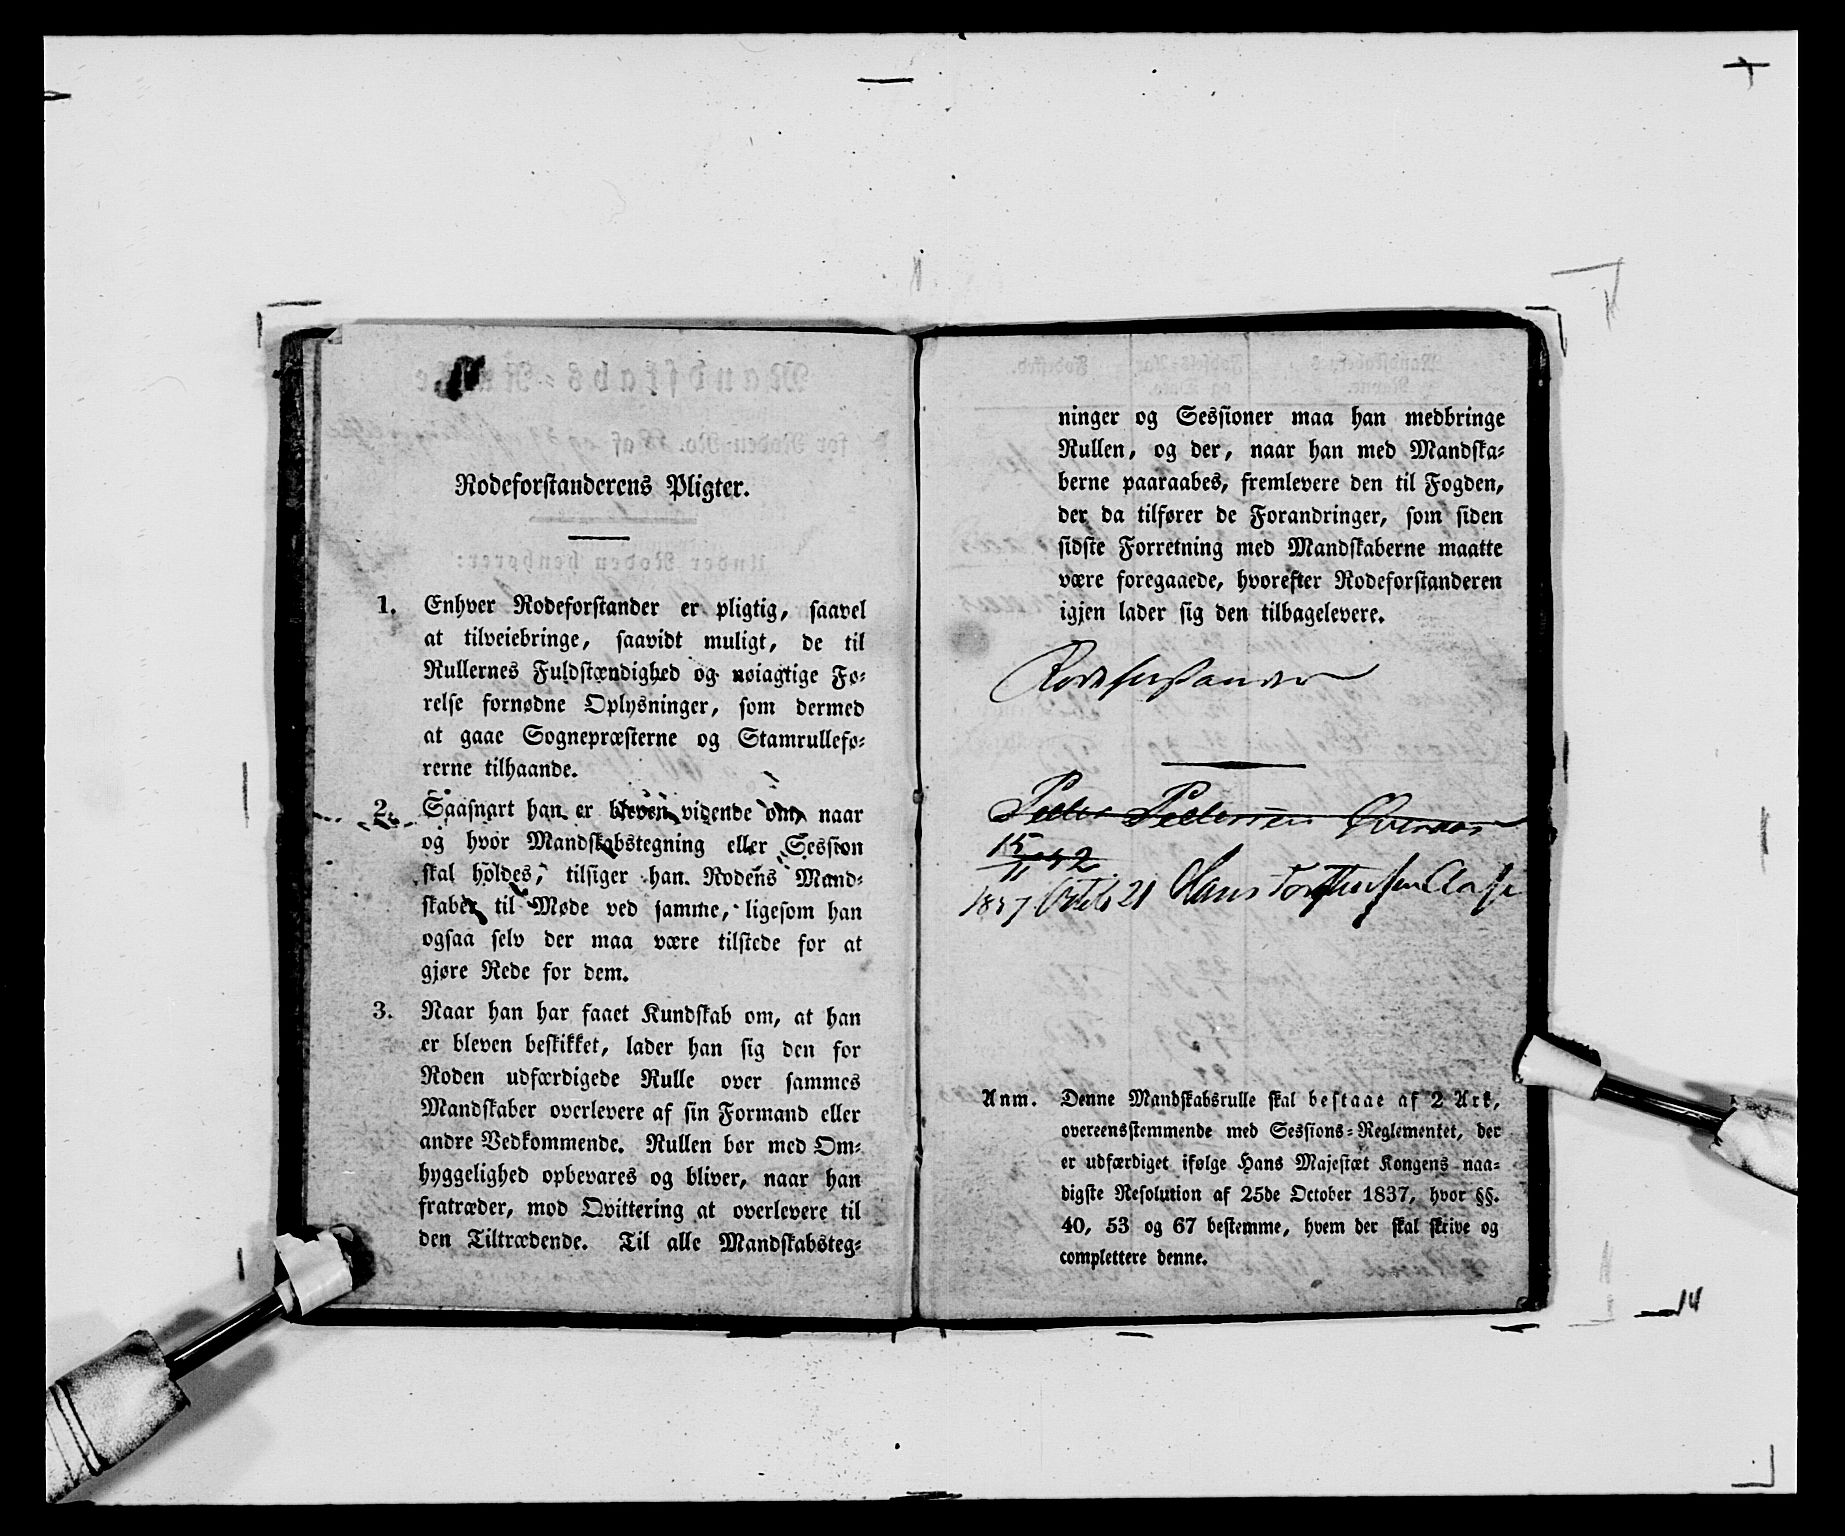 Rodeforstanderens Pligter.
1. Enhver Rodeforstander er pligtig, saavel
at tilveiebringe, saavidt muligt, de til
Rullernes Fuldstændighed og nøiagtige Fø-
relse fornødne Oplysninger, som dermed
at gaae Sognepræsterne og Stamrullefø-
rerne tilhaande.
2. Saasnart han er bleven vidende om, naar
og hvor Mandskabstegning eller Session
skal holdes, tilsiger han Rodens Mand-
skaber til Møde ved samme, ligesom han
ogsaa selv der maa være tilstede for at
gjøre Rede for dem.
3. Naar han har faaet Kundskab om, at han
er bleven beskikket, lader han sig den for
Roden udfærdigede Rulle over sammes
Mandskaber overlevere af sin Formand eller
andre Vedkommende. Rullen bør med Om-
hyggelighed opbevares og bliver, naar han
fratræder, mod Qvittering at overlevere til
den Tiltrædende. Til alle Mandskabsteg-
ninger og Sessioner maa han medbringe
Rullen, og der, naar han med Mandska-
berne paaraabes, fremlevere den til Fogden,
der da tilfører de Forandringer, som siden
sidste Forretning med Mandskaberne maatte
være foregaaede, hvorefter Rodeforstanderen
igjen lader sig den tilbagelevere.
Rodeforstander
Peder Pedersen
15/11 52
1857 Octob 21 Hans
Anm. Denne Mandskabsrulle skal bestaae af 2 Ark,
overeensstemmende med Sessions-Reglementet, der
er udfærdiget ifølge Hans Majestæt Kongens naa-
digste Resolution af 25de October 1837, hvor §§.
40, 53 og 67 bestemme, hvem der skal skrive og
complettere denne.
14